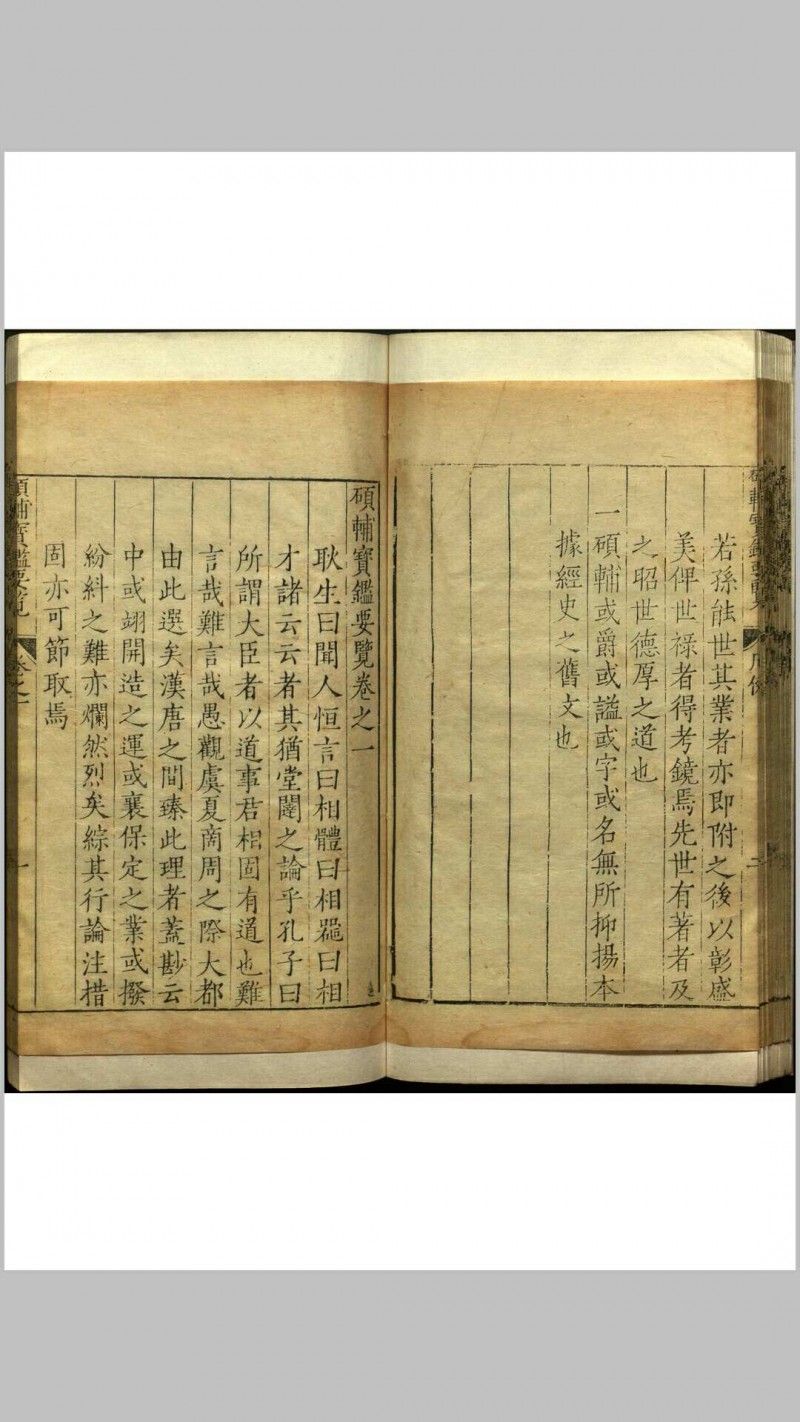 若孫能世其業者亦即附之後以彰盛
美俾世祿者得考鏡焉先世有著者及
之昭世德厚之道也
一碩輔或爵或謚或字或名無所抑揚本
據經史之舊文也
碩輔寶鑑要覽卷之一
耿生曰聞人恒言曰相體曰相器曰相
才諸云云者其猶堂闥之論乎孔子曰
所謂大臣者以道事君相固有道也難
言哉難言哉愚觀虞夏商周之際大都
由此選矣漢唐之間臻此理者蓋尠云
中或翊開造之運或襄保定之業或撥
紛糾之難亦爛然烈矣綜其行論注措
固亦可節取焉
碩輔寶鑑要覽
卷之一
一